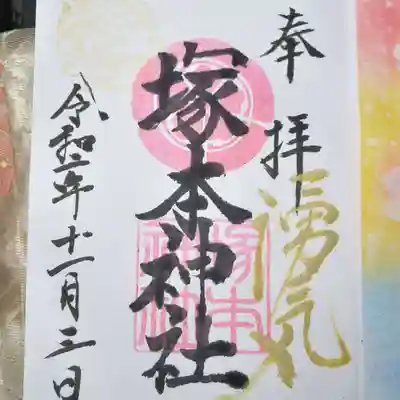 奉拝
湧気
塚本神社
塚本神社
令和二年十一月三日